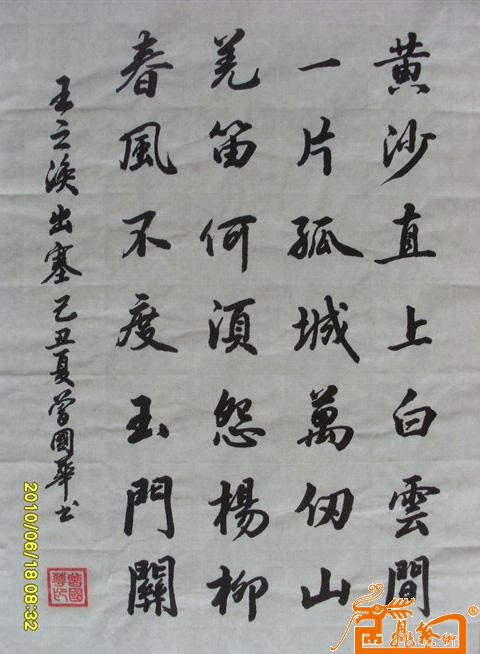 黄沙直上白雲間
一片孤城萬仞山
羌笛何須怨楊柳
春風不度玉門關
王之渙出塞己丑夏曾國華书
曾國華印
2010/06/18 08:32